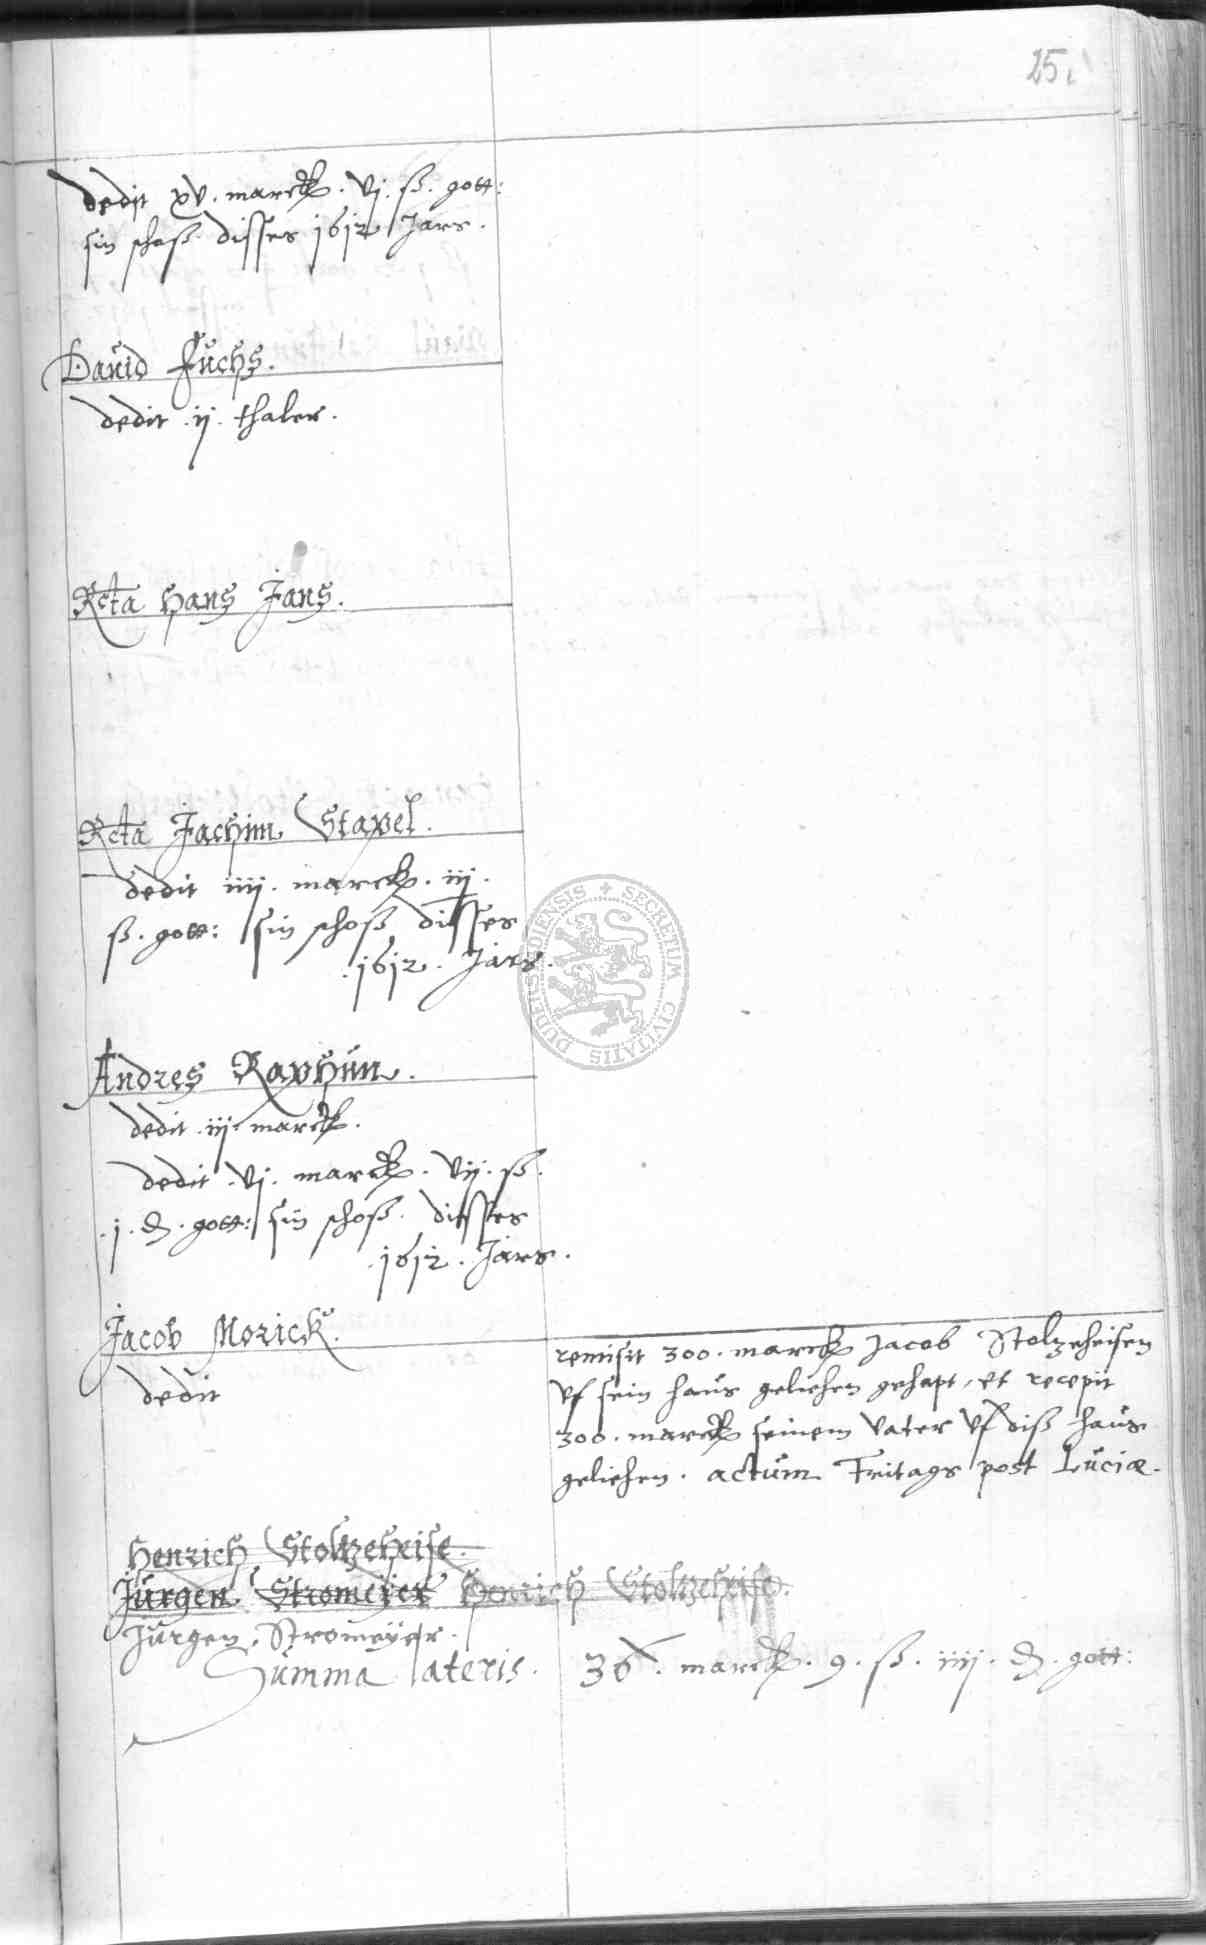 25.
dedit xv. marck. vj. ß. gott:
sin schoß disses 1612 Jars.
Dauid Fuchs.
dedit .ij. thaler.
Rcta Hans Jans.
Rcta Jachim Stapel.
dedit iiij. marck. iij.
ß. gott: sin schoß disses
.1612. Jars.
Andres Raphun.
dedit .iij. marck.
dedit .vj. marck. vij. ß.
.j. d. gott: sin schoß. disses
.1612. Jars.
Jacob Morick.
dedit
remisit 300. marck Jacob Stoltzeheisen
vf sein haus geliehen gehapt, et recepit
300. marck seinem vater vf diß haus
geliehen. actum Fritags post Luciæ.
Henrich Stoltzeheise.
Jurgen Stromeyer Henrich Stoltzeheise.
Jurgen. Stromeyer.
Summa lateris. 36. marck. 9. ß. iiij. d. gott:
SECRETUM CIVITATIS DUDERSTADIENSIS